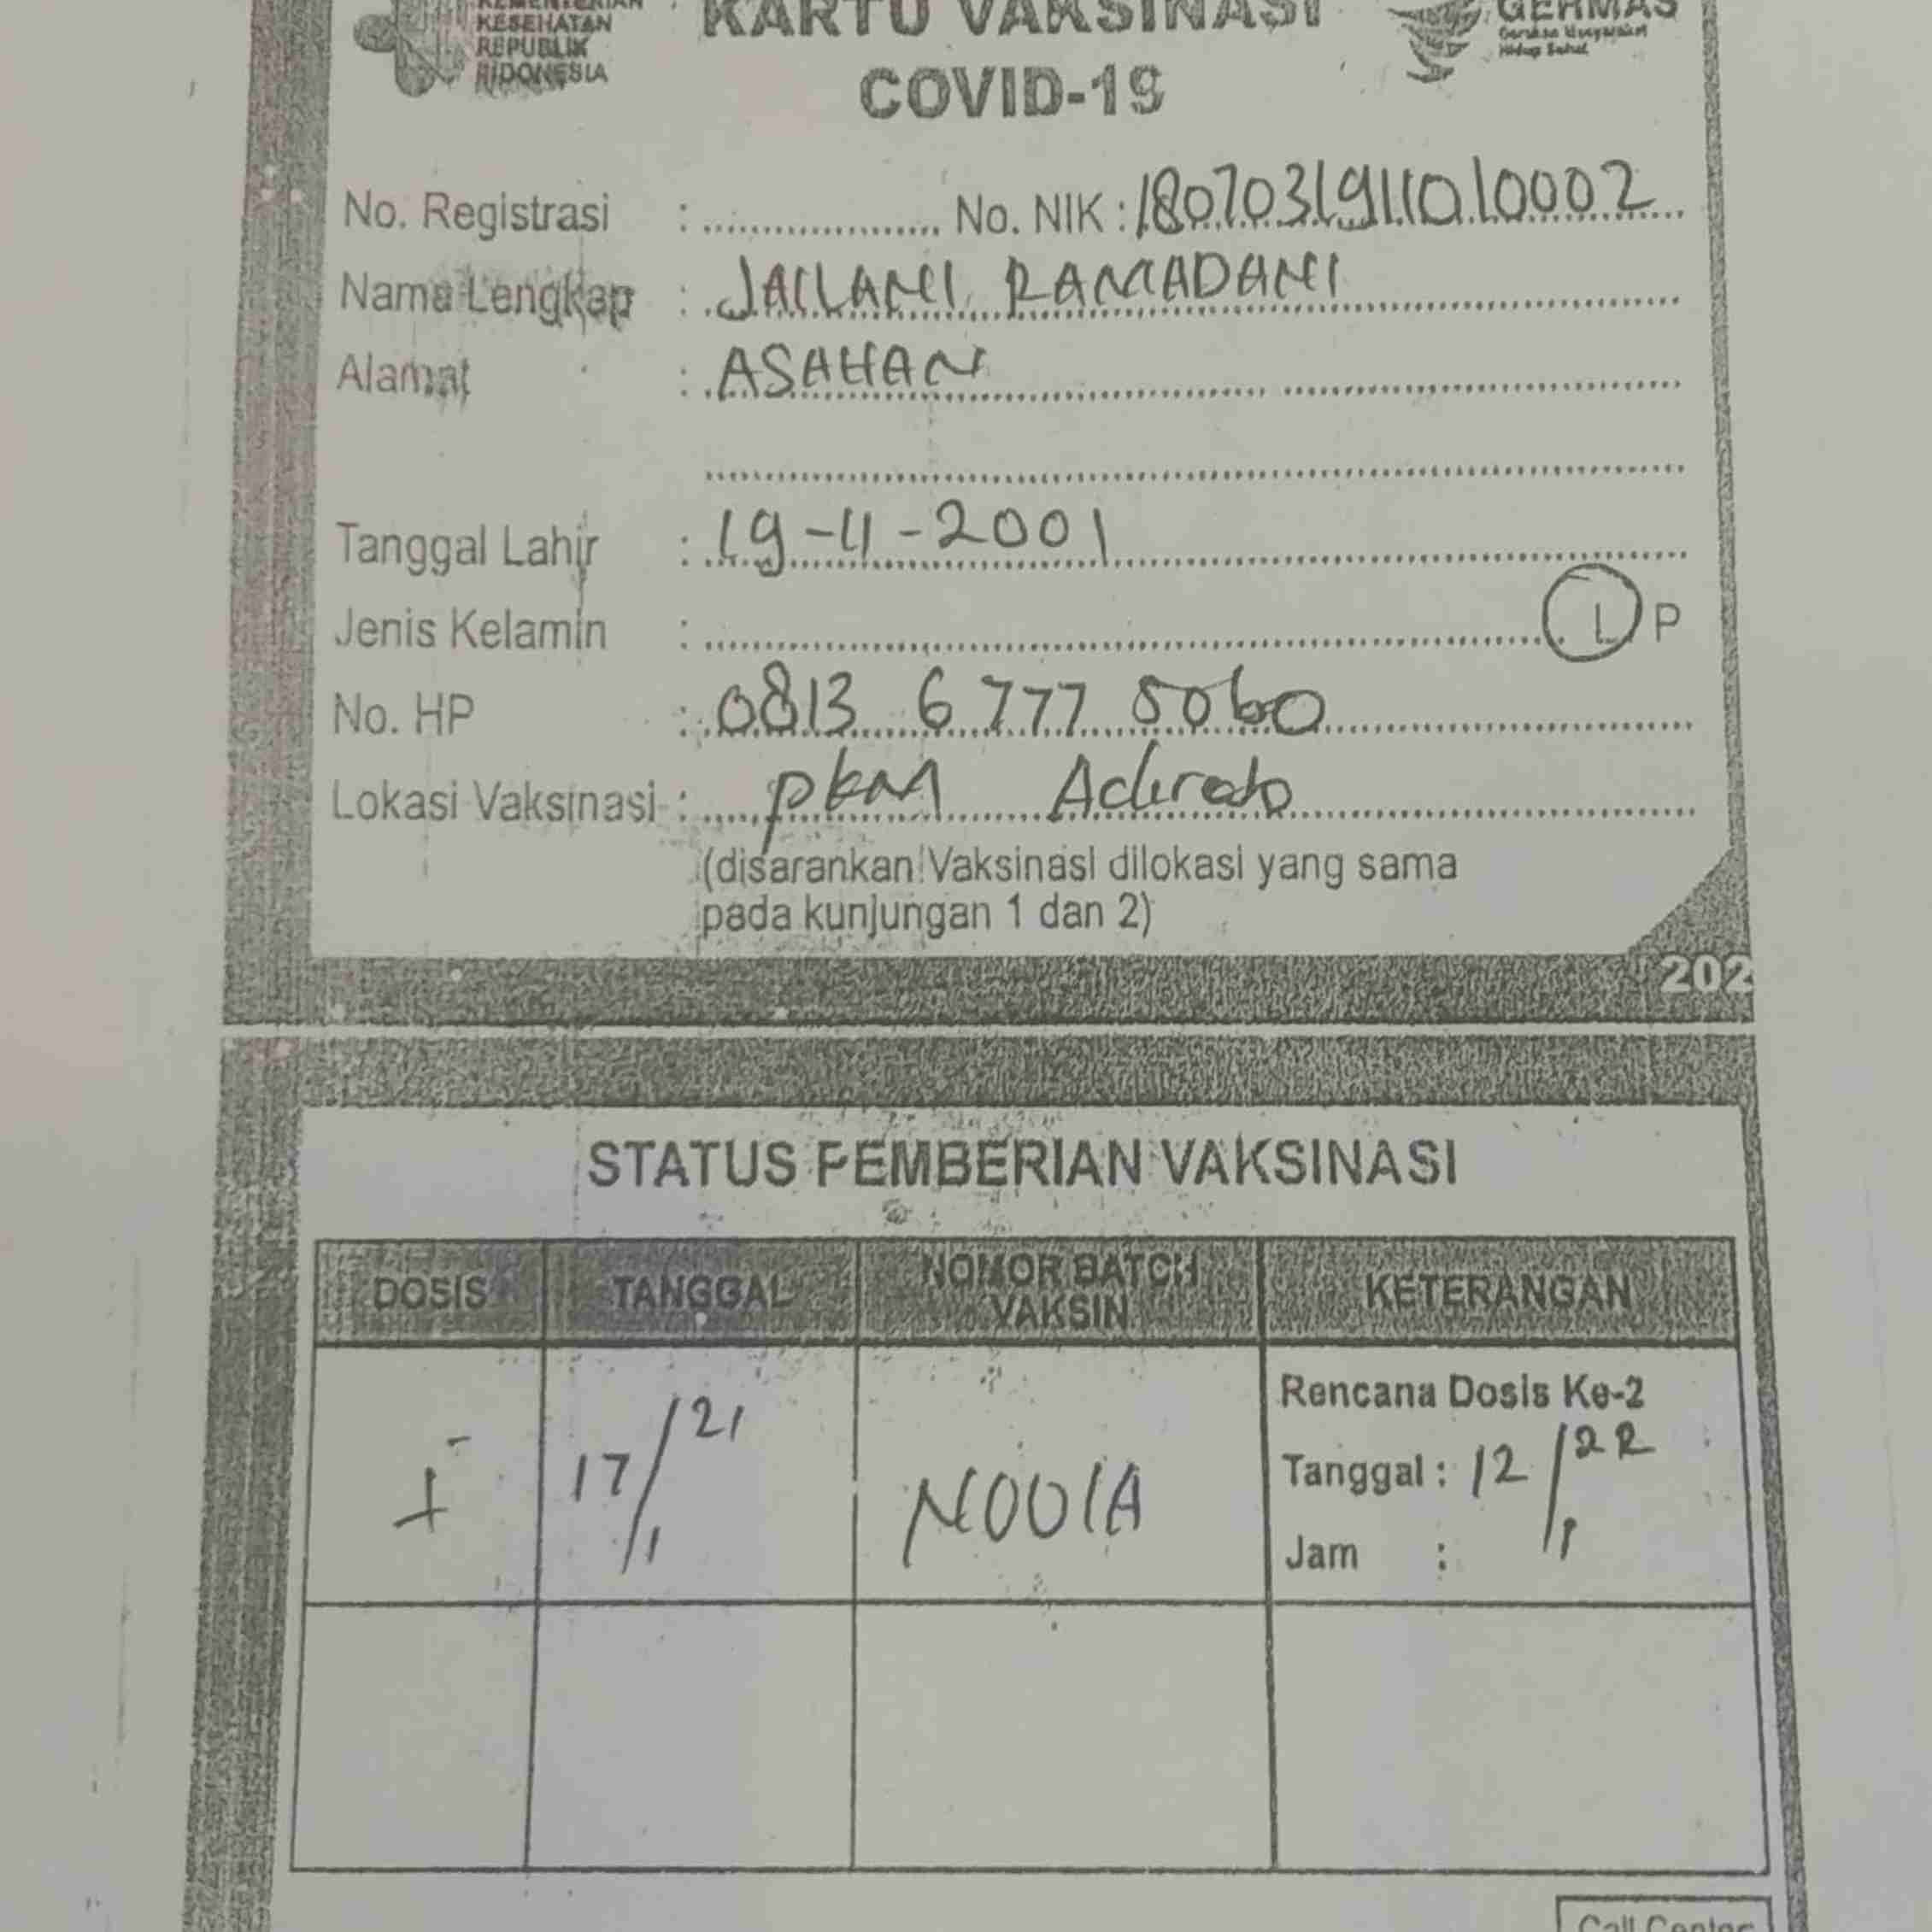 KEMENTERIAN
KESEHATAN
REPUBLIK
INDONESIA
KARTU VAKSINASI
COVID-19
GERMAS
Gerakan Masyarakat
Hidup Sehat
No. Registrasi : No. NIK : 1807031911010002
Nama Lengkap : JAILANI RAMADANI
Alamat : ASAHAN
Tanggal Lahir : 19-11-2001
Jenis Kelamin : L P
No. HP : 0813 6777 5060
Lokasi Vaksinasi : PKM
(disarankan Vaksinasi dilokasi yang sama
pada kunjungan 1 dan 2)
202
STATUS PEMBERIAN VAKSINASI
DOSIS TANGGAL NOMOR BATCH VAKSIN KETERANGAN
I 17/1 21 NOVIA Rencana Dosis Ke-2
Tanggal : 12/1 22
Jam :
Call Center